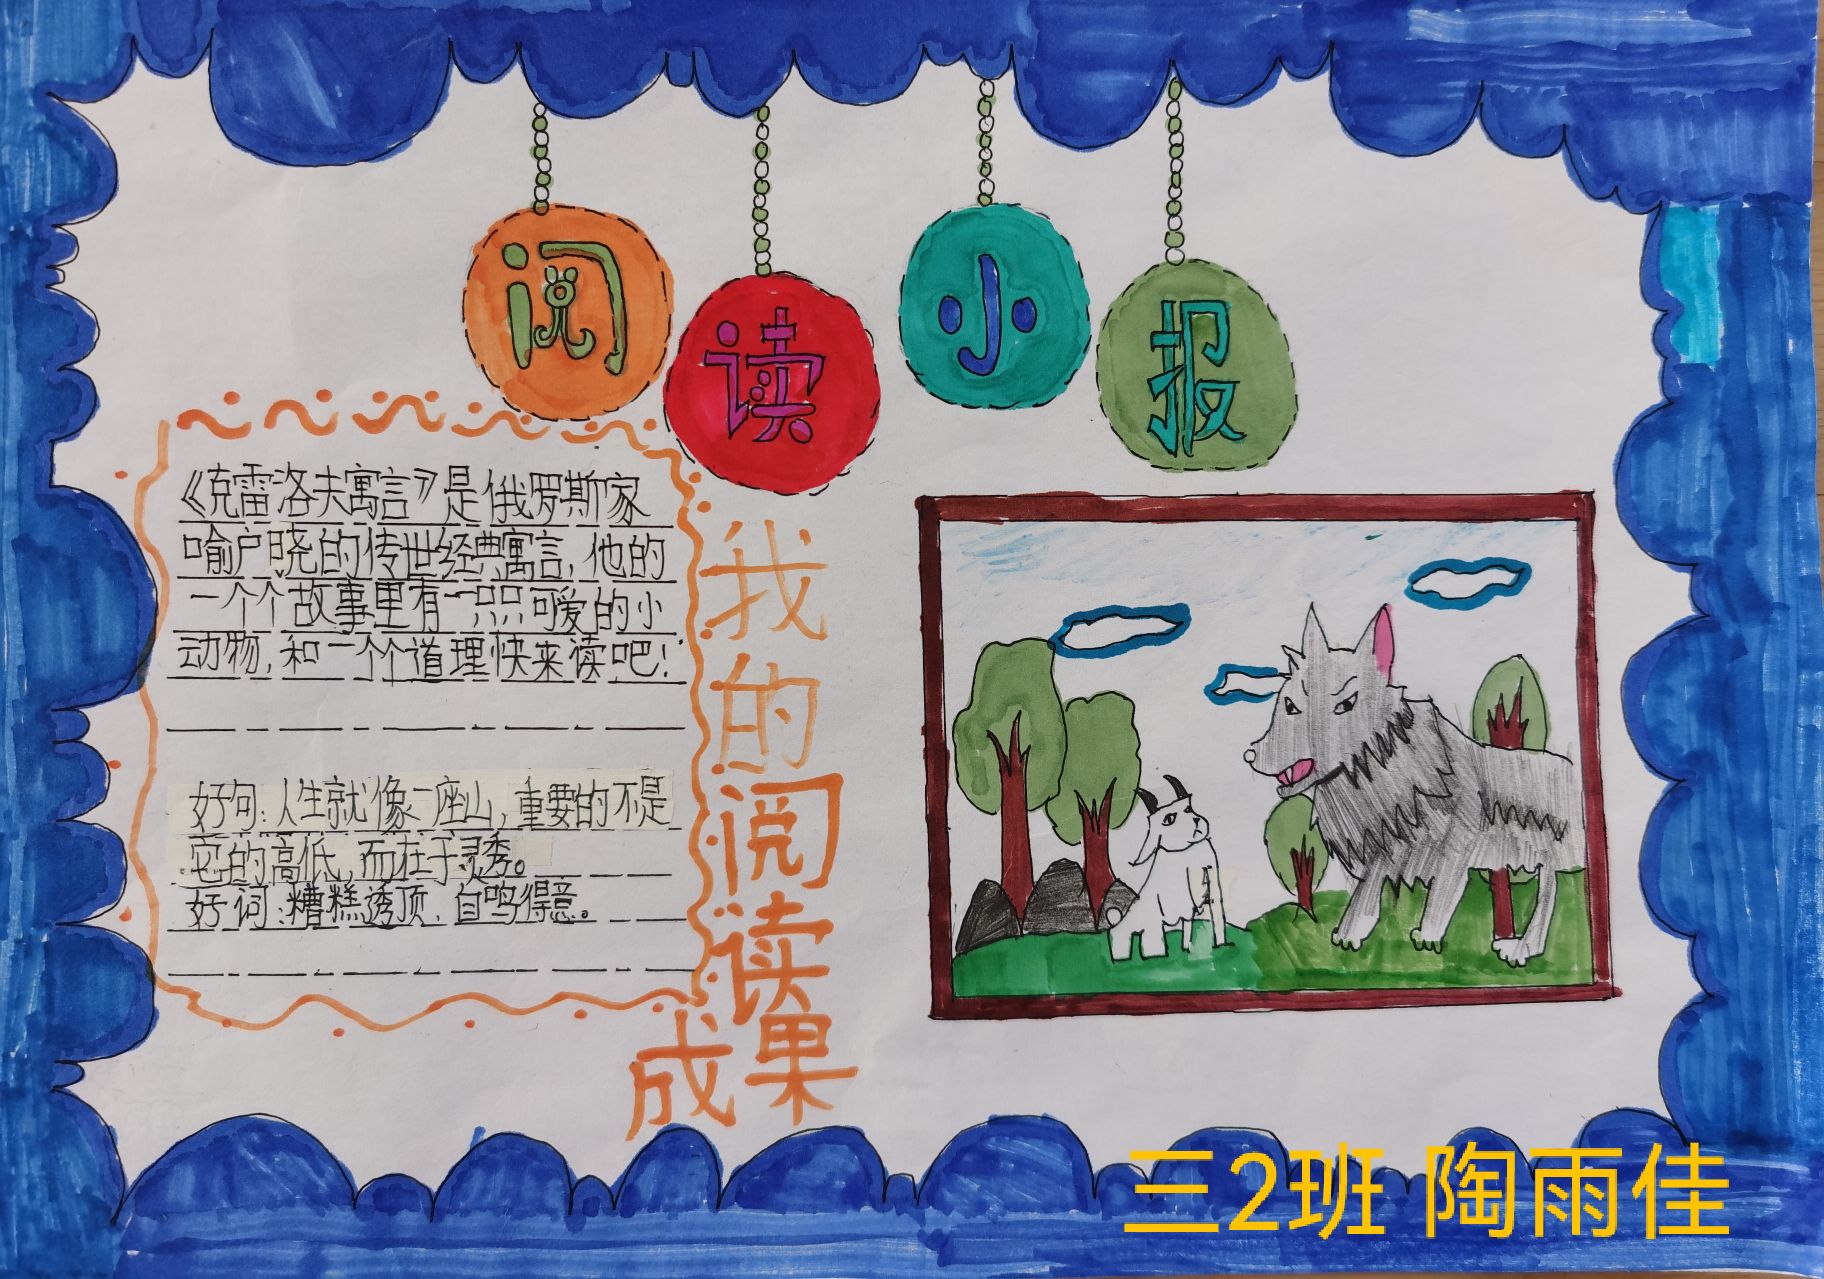 阅读小报
《克雷洛夫寓言》是俄罗斯家
喻户晓的传世经典寓言,他的
一个个故事里有一只只可爱的小
动物,和一个个道理快来读吧!
好句:人生就像一座山,重要的不是
它的高低,而在于灵秀。
好词:糟糕透顶、自鸣得意。
我的阅读成果
三2班 陶雨佳